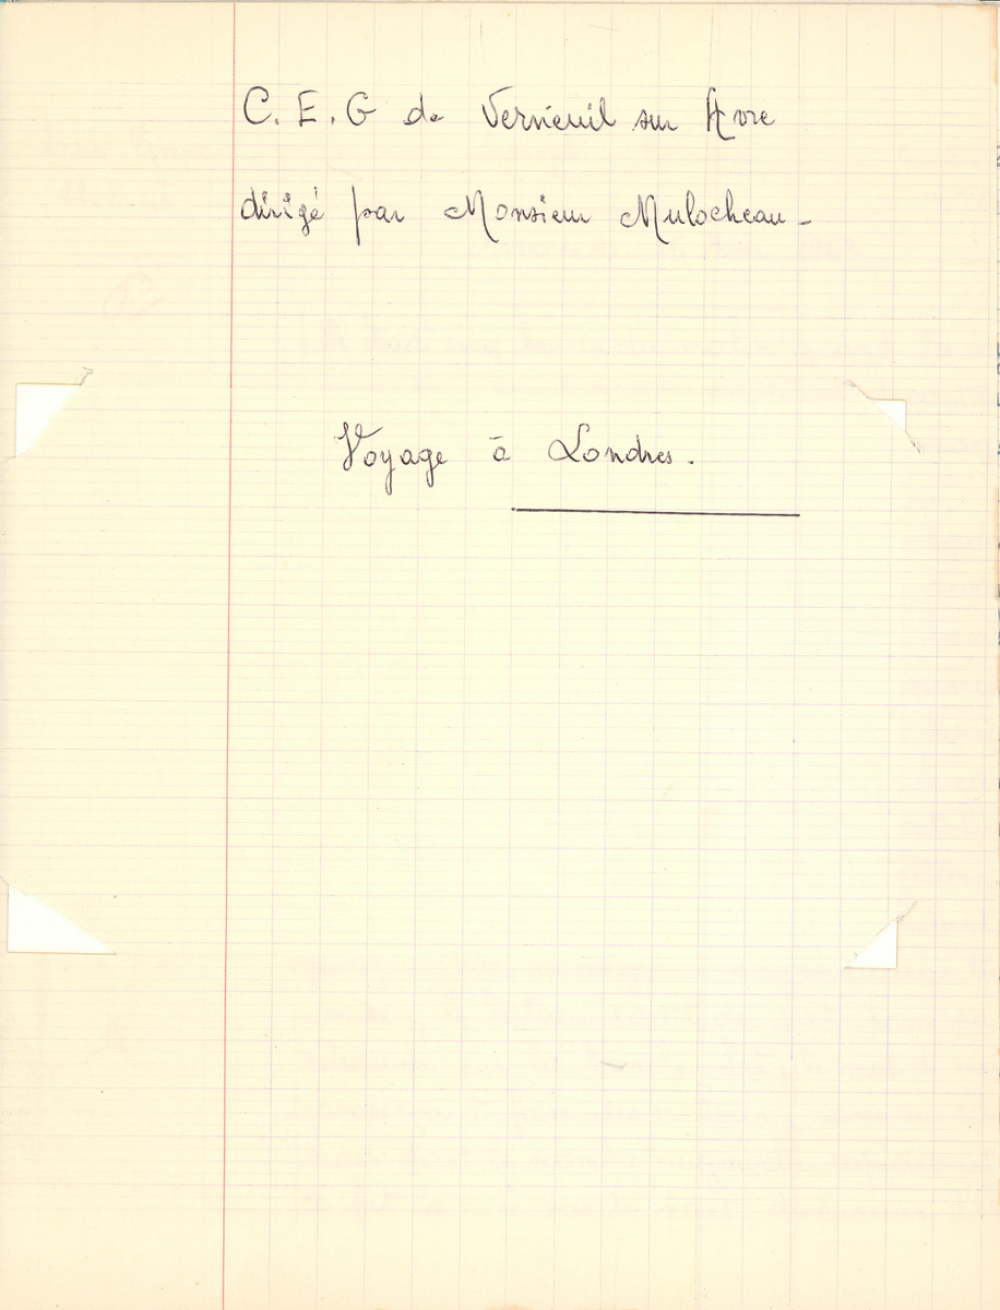 C. E. G de Verneuil sur Avre
dirigé par Monsieur Mulocheau -
Voyage à Londres.